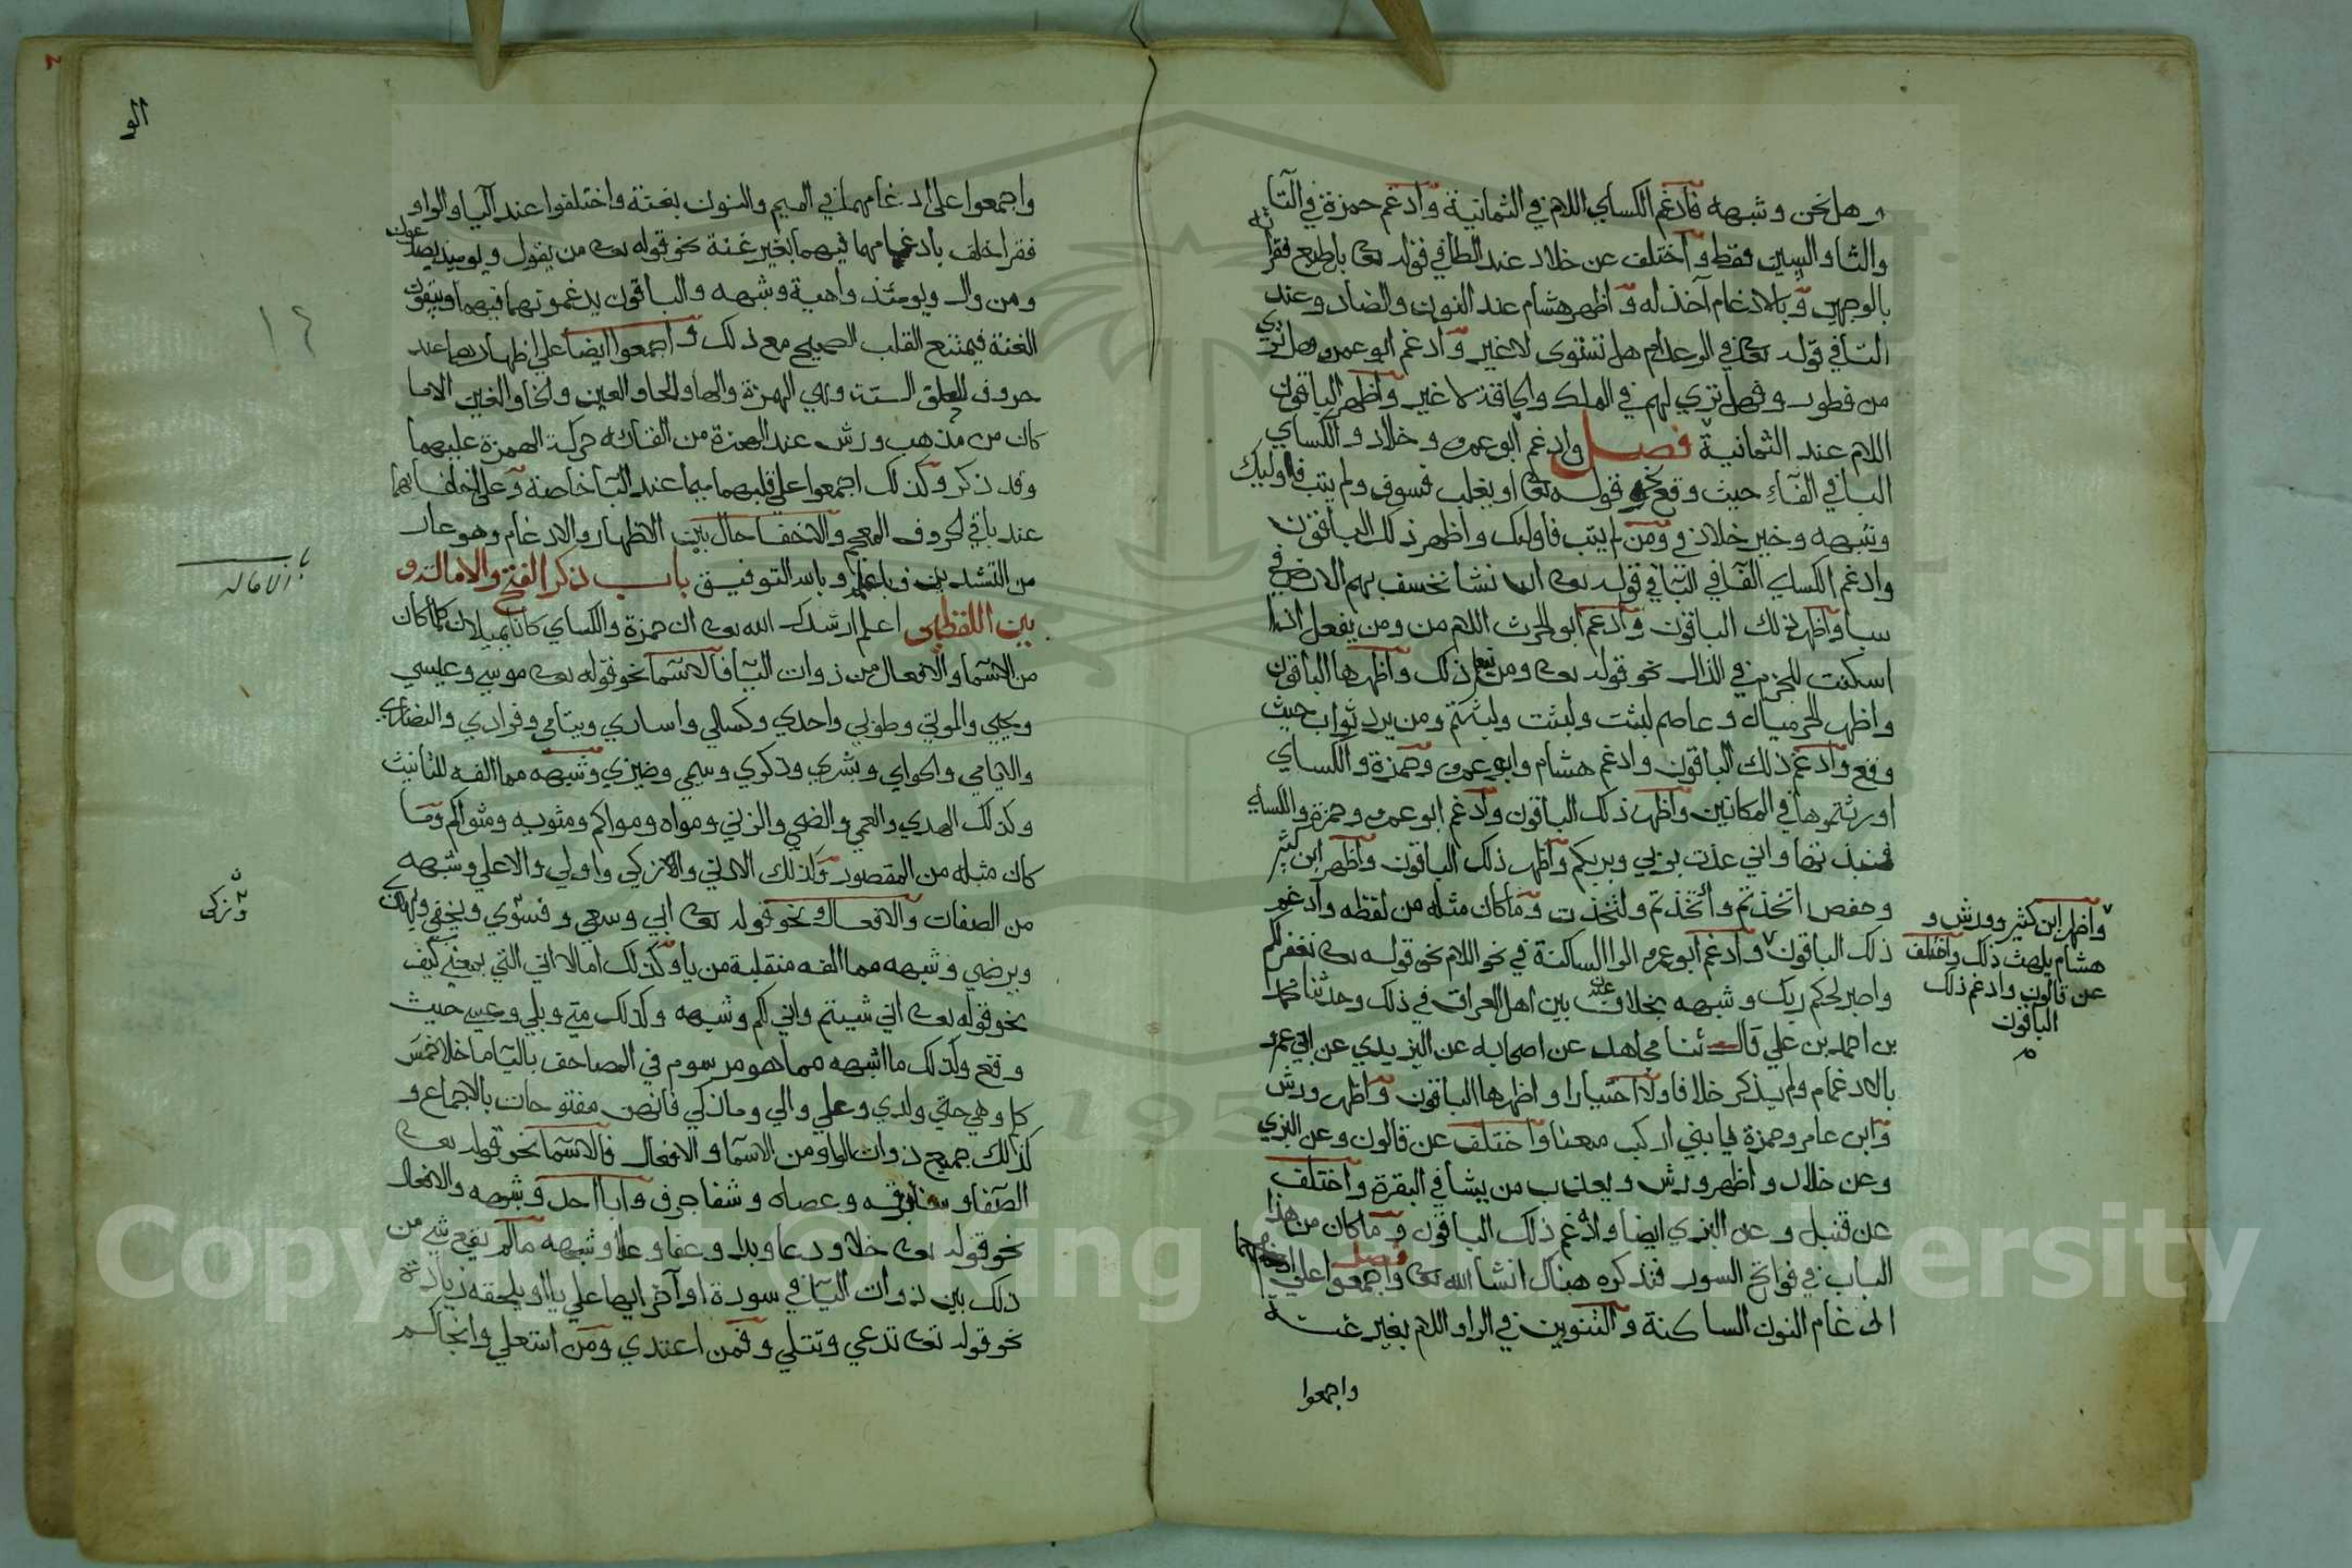 وهل نحن وشبهه فادغم الكساي اللام في الثمانية وادغم حمزة في التا
والثا والسين فقط واختلف عن خلاد عند الطا في قوله تعا بل طبع فقرا ته
بالوجهين وبالادغام آخذ له واظهر هشام عند النون والضاد وعند
التا في قوله تعا في الرعد ام هل تستوى لا غير وادغم ابو عمرو هل تري
من فطور وفهل تري لهم في الملك والحاقة لا غير واظهر الباقون
اللام عند الثمانية فصل وادغم ابو عمرو وخلاد والكساي
البا في الفآء حيث وقع نحو قوله تعا او يغلب فسوف ولم يتب فاوليك
وشبهه وخير خلاد في ومن لم يتب فاولئك واظهر ذلك الباقون
وادغم الكساي الفآ في البا في قوله تعا ان نشا نخسف بهم الارض في
سبا واظهر ذلك الباقون وادغم ابو الحرث اللام من ومن يفعل اذا
اسكنت للجزم في الذال نحو قوله تعا ومن يفعل ذلك واظهرها الباقون
واظهر الحرميان وعاصم لبثت ولبثت ولبثتم ومن يرد ثواب حيث
وقع وادغم ذلك الباقون وادغم هشام وابو عمرو وحمزة والكساي
اورثتموها في المكانين واظهر ذلك الباقون وادغم ابو عمرو وحمزة والكساي
فنبذتها واني عذت بربي وبربكم واظهر ذلك الباقون واظهر ابن كثير
وحفص اتخذتم وأتخذتم ولتخذت وما كان مثله من لفظه وادغم
ذلك الباقون وادغم ابو عمرو الرا الساكنة في نحو اللام نحو قوله تعا نغفر لكم
واصبر لحكم ربك وشبهه بخلاف عنه بين اهل العراق في ذلك وحدثنا محمد
بن احمد بن علي قال ثنا ابن مجاهد عن اصحابه عن اليزيدي عن ابي عمرو
بالادغام ولم يذكر خلافا ولا اختيارا واظهرها الباقون واظهر ورش
وابن عامر وحمزة يا بني اركب معنا واختلف عن قالون وعن البزي
وعن خلاد واظهر ورش ويعذب من يشا في البقرة واختلف
عن قنبل وعن البزي ايضا وادغم ذلك الباقون وما كان من هذا
الباب في فواتح السور فنذكره هناك ان شا الله تعا فصل واجمعوا علي
ادغام النون الساكنة والتنوين في الرا واللام بغير غنة
واجمعوا
واظهر ابن كثير وورش و
هشام يلهث ذلك واختلف
عن قالون وادغم ذلك
الباقون
م
واجمعوا على ادغامهما في الميم والنون بغنة واختلفوا عند اليا والواو
فقرا خلف بادغامهما فيهما بغير غنة نحو قوله تعا من يقول ويوميذ يصدعون
ومن وال ويومئذ واهية وشبهه والباقون يدغمونهما فيهما ويبقون
الغنة فيمتنع القلب الصحيح مع ذلك واجمعوا ايضا علي اظهارهما عند
حروف الحلق الستة وهي الهمزة والها والحا والعين والخا والغين الا ما
كان من مذهب ورش عند الهمزة من القائه حركة الهمزة عليهما
وقد ذكر وكذلك اجمعوا علي قلبهما ميما عند البا خاصة وعلي اخفائهما
عند باقي الحروف المعجم والاخفا حال بين الاظهار والادغام وهو عار
من التشديد فاعلم وبالله التوفيق باب ذكر الفتح والامالة و
بين اللفظين اعلم ارشدك الله تعا ان حمزة والكساي كانا يميلان كلما كان
من الاسما والافعال من ذوات اليا فالاسما نحو قوله تعا موسي وعيسي
ويحيي والموتي وطوبي واحدي وكسالي واساري ويتامي وفرادي والنصاري
والايامي والحواي وبشري وذكري وسيمي وضيزي وشبهه مما الفه للتانيث
وكذلك الهدي والعمي والضحي والزني وماواه وماواكم ومثويه ومثواكم وما
كان مثله من المقصور وكذلك الادني والازكي واولي والاعلي وشبهه
من الصفات والافعال نحو قوله تعا ابي وسعي وفسوي ويخفي
ويرضي وشبهه مما الفه منقلبة من يا وكذلك امالا اني التي بمعني كيف
نحو قوله تعا اني شيتم واني لكم وشبهه وكذلك متي وبلي وعسي حيث
وقع وكذلك ما اشبهه مما هو مرسوم في المصاحف باليا ما خلا خمس
كلم وهي حتي ولدي وعلي والي وما زكي فانهن مفتوحات بالاجماع و
كذلك جميع ذوات الواو من الاسما والافعال فالاسما نحو قوله تعا
الصفا وسنا برقه وعصاه وشفا جرف وابا احد وشبهه والافعال
نحو قوله تعا خلا ودعا وبدا وعفا وعلا وشبهه ما لم يقع شي من
ذلك بين ذوات اليا في سورة اواخر ايها علي يا او يلحقه زيادة
نحو قوله تعا تدعي وتتلي وفمن اعتدي ومن استعلي وانجاكم
١٢
باب
الاماله
وتزكى